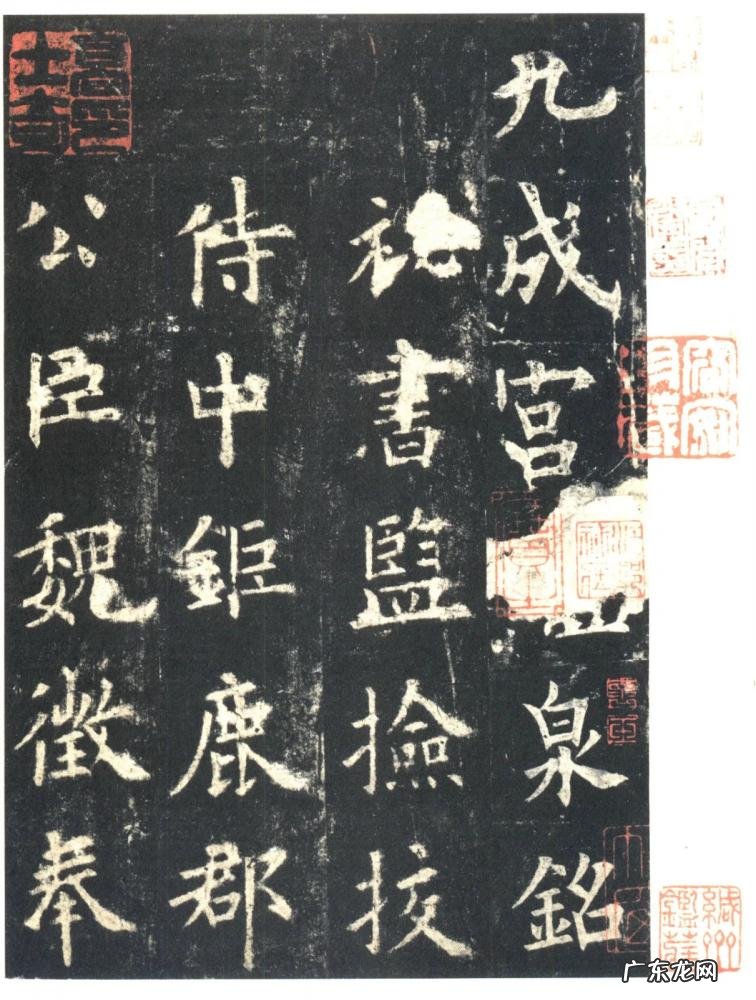 九成宮泉銘
祕書監撿挍
侍中鉅鹿郡
公臣魏徵奉
广东龙网